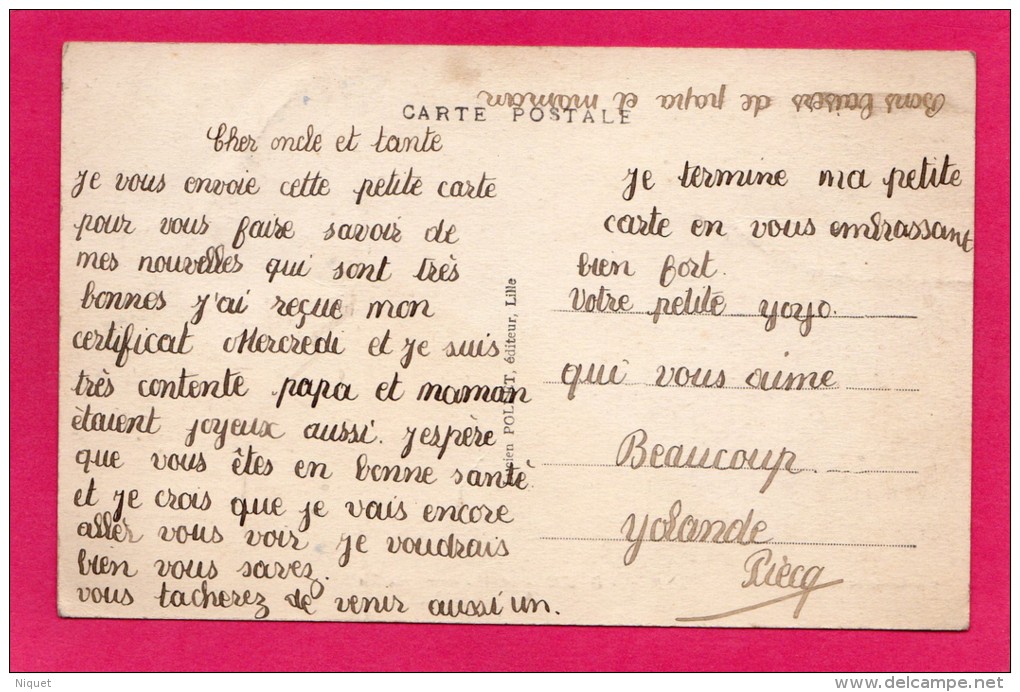 Bons baisers de papa et maman
CARTE POSTALE
Cher oncle et tante
Je vous envoie cette petite carte
pour vous faire savoir de
mes nouvelles qui sont très
bonnes j'ai reçue mon
certificat Mercredi et je suis
très contente papa et maman
ètaient joyeux aussi. j'espère
que vous êtes en bonne santè
et je crois que je vais encore
aller vous voir je voudrais
bien vous savez
vous tacherez de venir aussi un.
éditeur, Lille
Je termine ma petite
carte en vous embrassant
bien fort.
Votre petite yoyo.
qui vous aime
Beaucoup
yolande
Piecq
Niquet
delcampe.net